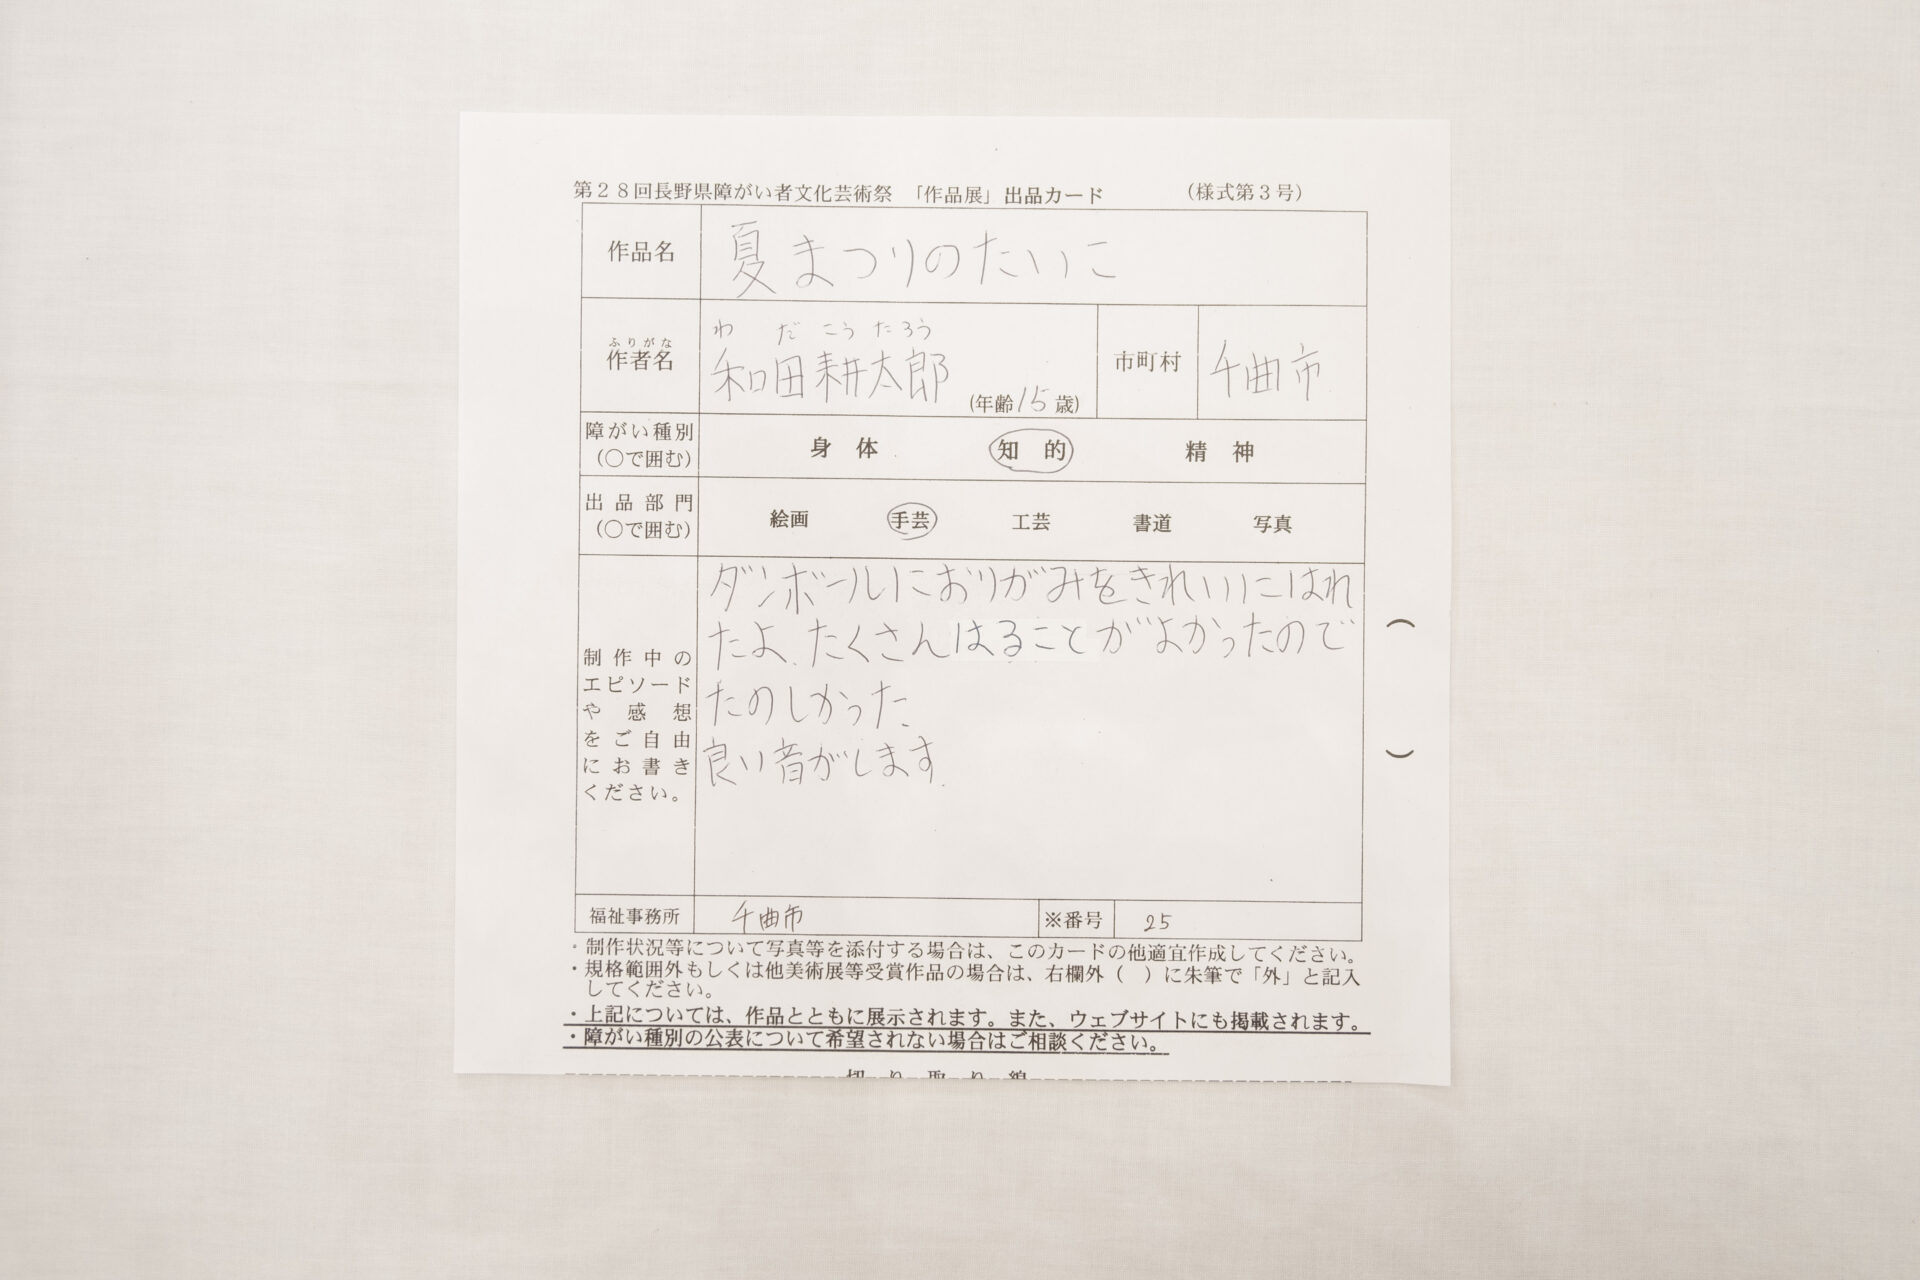 第２８回長野県障がい者文化芸術祭 「作品展」出品カード （様式第３号）
作品名 夏まつりのたいこ
ふりがな わ だ こう たろう
作者名 和田耕太郎 (年齢15歳) 市町村 千曲市
障がい種別 （○で囲む） 身体 知的 精神
出品部門 （○で囲む） 絵画 手芸 工芸 書道 写真
制作中の
エピソード
や感想
をご自由
にお書き
ください。
ダンボールにおりがみをきれいにはれ
たよ、たくさんはることがよかったので
たのしかった、
良い音がします.
（
）
福祉事務所 千曲市 ※番号 25
・制作状況等について写真等を添付する場合は、このカードの他適宜作成してください。
・規格範囲外もしくは他美術展等受賞作品の場合は、右欄外（ ）に朱筆で「外」と記入
してください。
・上記については、作品とともに展示されます。また、ウェブサイトにも掲載されます。
・障がい種別の公表について希望されない場合はご相談ください。
切り取り線